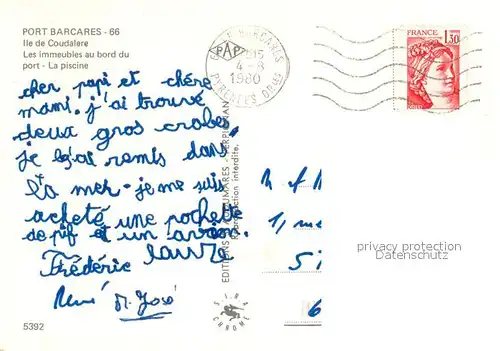 PORT BARCARES - 66
Ile de Coudalere
Les immeubles au bord du
port - La piscine
PORT BARCARES
PAP
4-8
1980
PYRENEES ORles
FRANCE
1,30
cher papi et chère
mami. j'ai trouvé
deux gros crabes
je les ai remis dans
la mer. je me suis
acheté une pochette
de pif et un avion.
Laure
Frédéric
René M. José
EDITIONS
interdite.
M et M
1, rue
5 i
6
privacy protection
Datenschutz
CHROME
5392